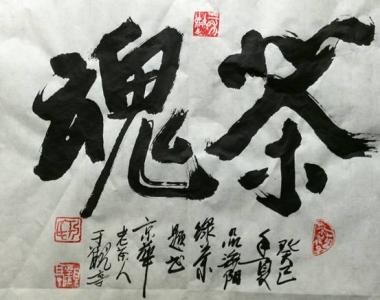 茶魂
癸巳
年夏
品海阳
绿茶
题
京華
老茶人
于观亭